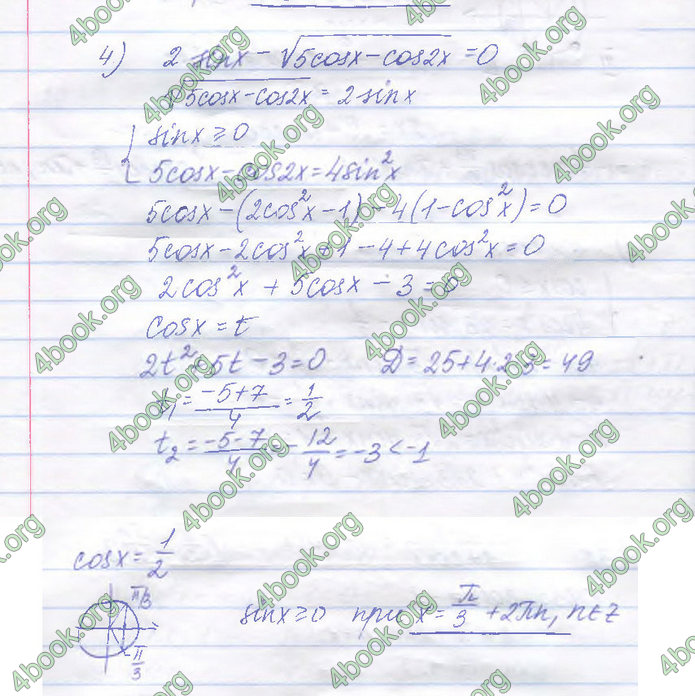 4) 2 sinx - √5cosx-cos2x = 0
√5cosx-cos2x = 2sinx
{ sinx ≥ 0
5cosx - cos2x = 4sin²x
5cosx - (2cos²x - 1) - 4(1-cos²x) = 0
5cosx - 2cos²x + 1 - 4 + 4cos²x = 0
2cos²x + 5cosx - 3 = 0
cosx = t
2t² + 5t - 3 = 0 D = 25+4·2·3 = 49
t₁ = (-5+7)/4 = 1/2
t₂ = (-5-7)/4 = -12/4 = -3 < -1
cosx = 1/2
π/3
sinx ≥ 0 при x = π/3 + 2πn, n∈Z
-π/3
4book.org